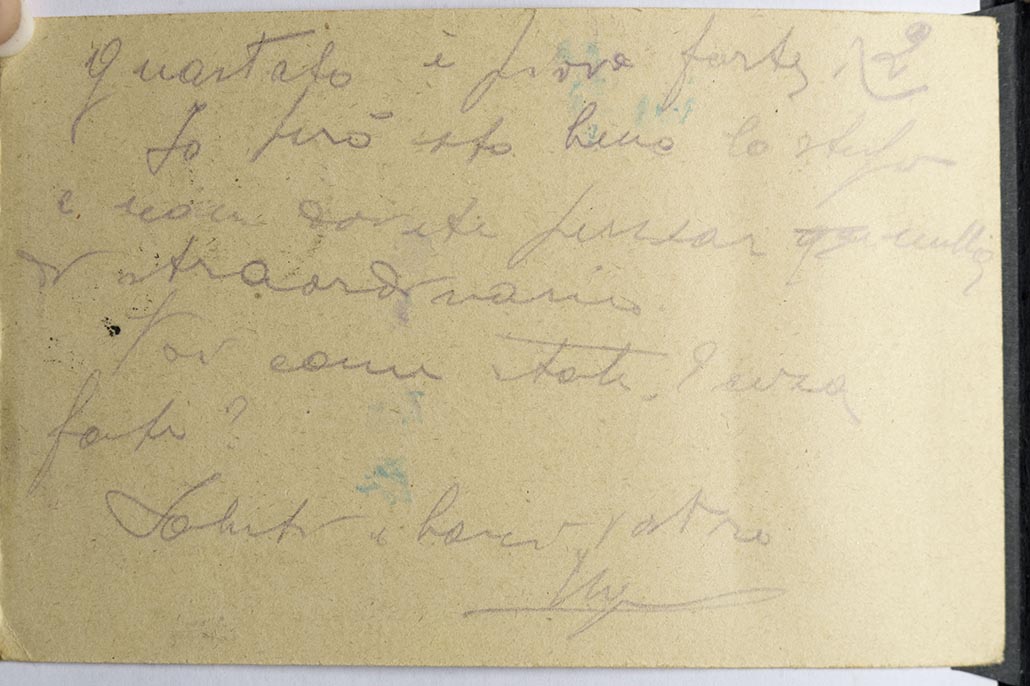 guastato e piove forte,
Io però sto bene lo stesso
e non dovete pensar nulla
di straordinario.
Voi come state,
fate?
Saluti e baci vostro